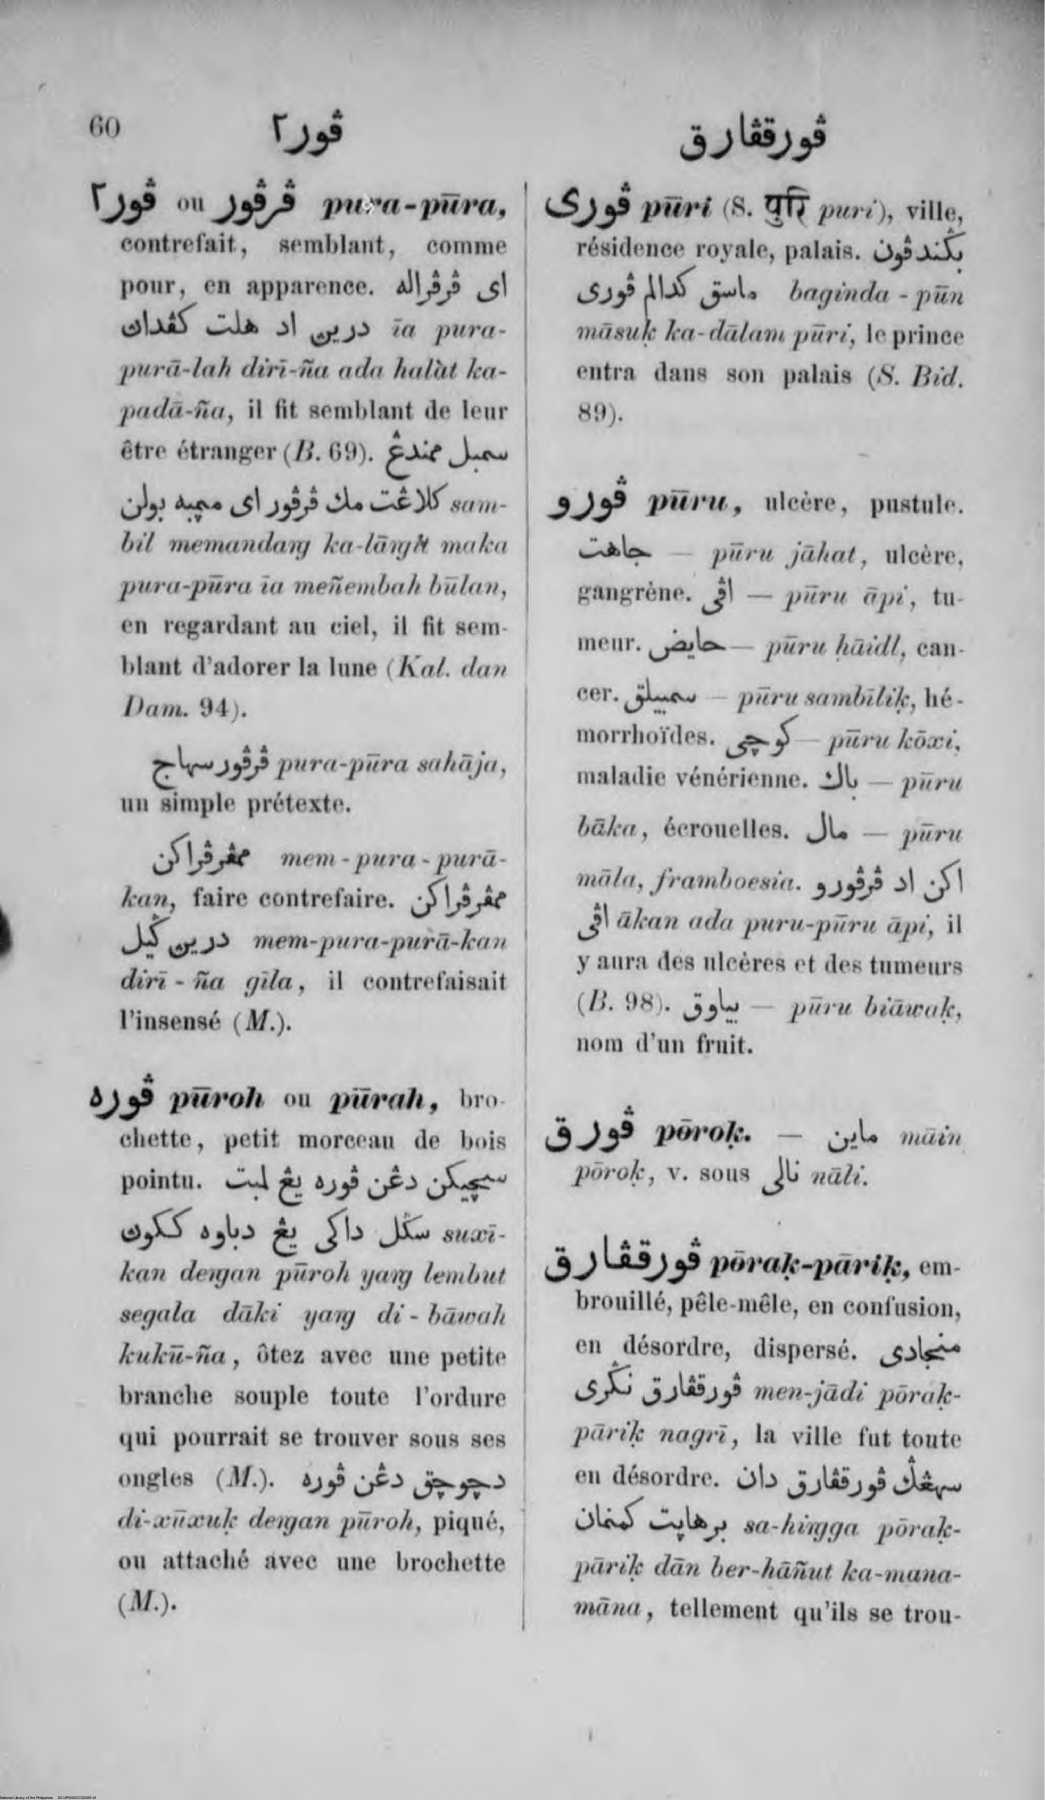 60
ڤور٢
ڤورقڤارق
ڤور٢ ou ڤرڤور pura-pūra,
contrefait, semblant, comme
pour, en apparence. اى ڤرڤراله
درين اد هلت كڤدان īa pura-
purā-lah dirī-ña ada halàt ka-
padā-ña, il fit semblant de leur
être étranger (B. 69). سمبل ممندڠ
كلاڠت مك ڤرڤور اى مڽمبه بولن sam-
bil memandaŋ ka-lāŋit maka
pura-pūra īa meñembah būlan,
en regardant au ciel, il fit sem-
blant d’adorer la lune (Kal. dan
Dam. 94).
ڤرڤور سهاج pura-pūra sahāja,
un simple prétexte.
ممڤرڤراكن mem-pura-purā-
kan, faire contrefaire. ممڤرڤراكن
درين ݢيل mem-pura-purā-kan
dirī-ña gīla, il contrefaisait
l’insensé (M.).
ڤوره pūroh ou pūrah, bro-
chette, petit morceau de bois
pointu. سوچيكن دڠن ڤوره يڠ لمبت
سݢل داكى يڠ دباوه ككوڽ suxī-
kan deŋan pūroh yaŋ lembut
segala dāki yaŋ di-bāwah
kukū-ña, ôtez avec une petite
branche souple toute l’ordure
qui pourrait se trouver sous ses
ongles (M.). دچوچق دڠن ڤوره
di-xūxuḳ deŋan pūroh, piqué,
ou attaché avec une brochette
(M.).
ڤورى pūri (S. पुरि puri), ville,
résidence royale, palais. بݢندڤون
ماسق كدالم ڤورى baginda-pūn
māsuḳ ka-dālam pūri, le prince
entra dans son palais (S. Bid.
89).
ڤورو pūru, ulcère, pustule.
جاهت — pūru jāhat, ulcère,
gangrène. اڤى — pūru āpi, tu-
meur. حايض — pūru ḥāidl, can-
cer. سمبيلق — pūru sambīliḳ, hé-
morrhoïdes. كوچى — pūru kōxi,
maladie vénérienne. باك — pūru
bāka, écrouelles. مال — pūru
māla, framboesia. اكن اد ڤرڤورو
اڤى ākan ada puru-pūru āpi, il
y aura des ulcères et des tumeurs
(B. 98). بياوق — pūru biāwaḳ,
nom d’un fruit.
ڤورق pōroḳ. — ماين māin
pōroḳ, v. sous نالى nāli.
ڤورقڤارق pōraḳ-pāriḳ, em-
brouillé, pêle-mêle, en confusion,
en désordre, dispersé. منجادى
ڤورقڤارق نݢرى men-jādi pōraḳ-
pāriḳ nagrī, la ville fut toute
en désordre. سهڠݢ ڤورقڤارق دان
برهاڽت كمنمان sa-hiŋga pōraḳ-
pāriḳ dān ber-hāñut ka-mana-
māna, tellement qu’ils se trou-